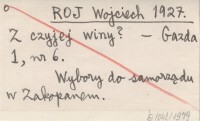 ROJ Wojciech 1927.
Z czyjej winy? – Gazda
1, nr 6.
Wybory do samorządu
w Zakopanem.